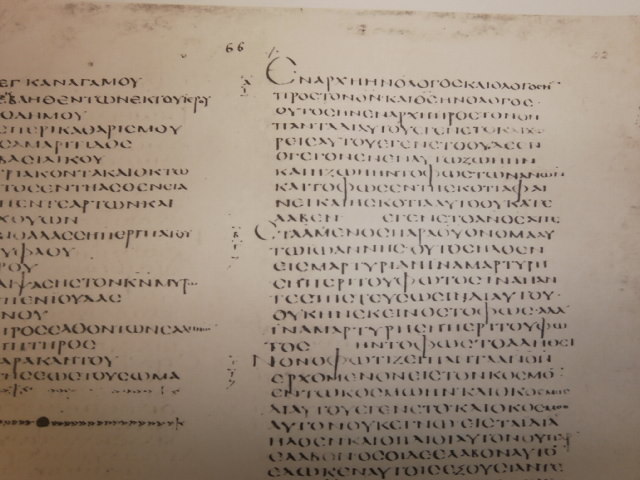 66
ΕΓΚΑΝΑΓΑΜΟΥ
ΕΚΒΛΗΘΕΝΤΩΝΕΚΤΟΥΙΕΡΟΥ
ΟΔΗΜΟΥ
ϹΠΕΡΙΚΑΘΑΡΙϹΜΟΥ
ϹΑΜΑΡΙΤΙΔΟϹ
ΒΑϹΙΛΙΚΟΥ
ΤΡΙΑΚΟΝΤΑΚΑΙΟΚΤΩ
ΤΟϹΕΝΤΗΑϹΘΕΝΕΙΑ
ΠΕΝΤΕΑΡΤΩΝΚΑΙ
ΧΘΥΩΝ
ΘΑΛΑϹϹΗΠΕΡΙΠΑΤΟΥ
ΤΥΦΛΟΥ
ΡΟΥ
ΑΛΙΨΑϹΗϹΤΟΝΚΝΜΥΡ
ΠΕΝΙΟΥΔΑϹ
ΝΟΥ
ΠΡΟϹΕΛΘΟΝΤΩΝΕΛΛΗΝΩΝ
ΝΙΠΤΗΡΟϹ
ΑΡΑΚΛΗΤΟΥ
ΗϹΕΩϹΤΟΥϹΩΜΑ
ΕΝΑΡΧΗΗΝΟΛΟΓΟϹΚΑΙΟΛΟΓΟϹΗΝ
ΠΡΟϹΤΟΝΘΝΚΑΙΘϹΗΝΟΛΟΓΟϹ·
ΟΥΤΟϹΗΝΕΝΑΡΧΗΠΡΟϹΤΟΝΘΝ
ΠΑΝΤΑΔΙΑΥΤΟΥΕΓΕΝΕΤΟΚΑΙΧΩ
ΡΕΙϹΑΥΤΟΥΕΓΕΝΕΤΟΟΥΔΕΕΝ
ΟΓΕΓΟΝΕΝΕΝΑΥΤΩΖΩΗΗΝ
ΚΑΙΗΖΩΗΗΝΤΟΦΩϹΤΩΝΑΝΩΝ
ΚΑΙΤΟΦΩϹΕΝΤΗϹΚΟΤΙΑΦΑΙ
ΝΕΙΚΑΙΗϹΚΟΤΙΑΑΥΤΟΟΥΚΑΤΕ
ΛΑΒΕΝ ΕΓΕΝΕΤΟΑΝΟϹΑΠΕ
ϹΤΑΛΜΕΝΟϹΠΑΡΑΘΥΟΝΟΜΑΑΥ
ΤΩΙΩΑΝΝΗϹ·ΟΥΤΟϹΗΛΘΕΝ
ΕΙϹΜΑΡΤΥΡΙΑΝΙΝΑΜΑΡΤΥΡΗ
ϹΗΠΕΡΙΤΟΥΦΩΤΟϹΙΝΑΠΑΝ
ΤΕϹΠΙϹΤΕΥϹΩϹΙΝΔΙΑΥΤΟΥ·
ΟΥΚΗΝΕΚΕΙΝΟϹΤΟΦΩϹΑΛΛ
ΙΝΑΜΑΡΤΥΡΗϹΗΠΕΡΙΤΟΥΦΩ
ΤΟϹ ΗΝΤΟΦΩϹΤΟΑΛΗΘΕΙ
ΝΟΝΟΦΩΤΙΖΕΙΠΑΝΤΑΑΝΟΝ
ΕΡΧΟΜΕΝΟΝΕΙϹΤΟΝΚΟϹΜΟ
ΕΝΤΩΚΟϹΜΩΗΝΚΑΙΟΚΟϹΜΟϹ
ΔΙΑΥΤΟΥΕΓΕΝΕΤΟΚΑΙΟΚΟϹΜΟϹ
ΑΥΤΟΝΟΥΚΕΓΝΩΕΙϹΤΑΙΔΙΑ
ΗΛΘΕΝΚΑΙΟΙΙΔΙΟΙΑΥΤΟΝΟΥΠΑΡ
ΕΛΑΒΟΝΟϹΟΙΔΕΕΛΑΒΟΝΑΥΤΟ
ΕΔΩΚΕΝΑΥΤΟΙϹΕΞΟΥϹΙΑΝΤΕ